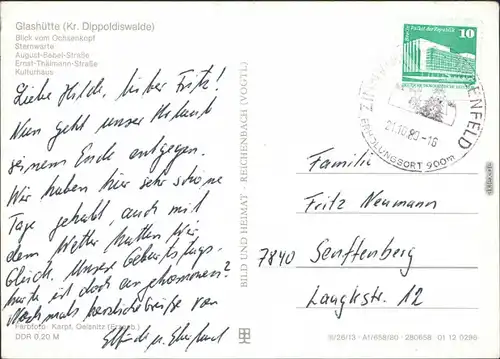 Glashütte (Kr. Dippoldiswalde)
Blick vom Ochsenkopf
Sternwarte
August-Bebel-Straße
Ernst-Thälmann-Straße
Kulturhaus
Liebe Hilde, lieber Fritz!
Nun geht unser Urlaub
seinem Ende entgegen.
Wir haben hier sehr schöne
Tage gehabt, auch mit
dem Wetter hatten wir
Glück. Unsere Geburtstags-
karte ist doch angekommen?
Nochmals herzliche Grüße von
Elfriede u. Ekkehard
Farbfoto: Karpf, Oelsnitz (Erzgeb.)
DDR 0,20 M
BILD UND HEIMAT · REICHENBACH (VOGTL)
10
Palast der Republik
21.10.80-16
ERHOLUNGSORT 900m
Familie
Fritz Neumann
7840 Senftenberg
Langestr. 12
III/26/13 · A1/658/80 · 280658 01 12 0296